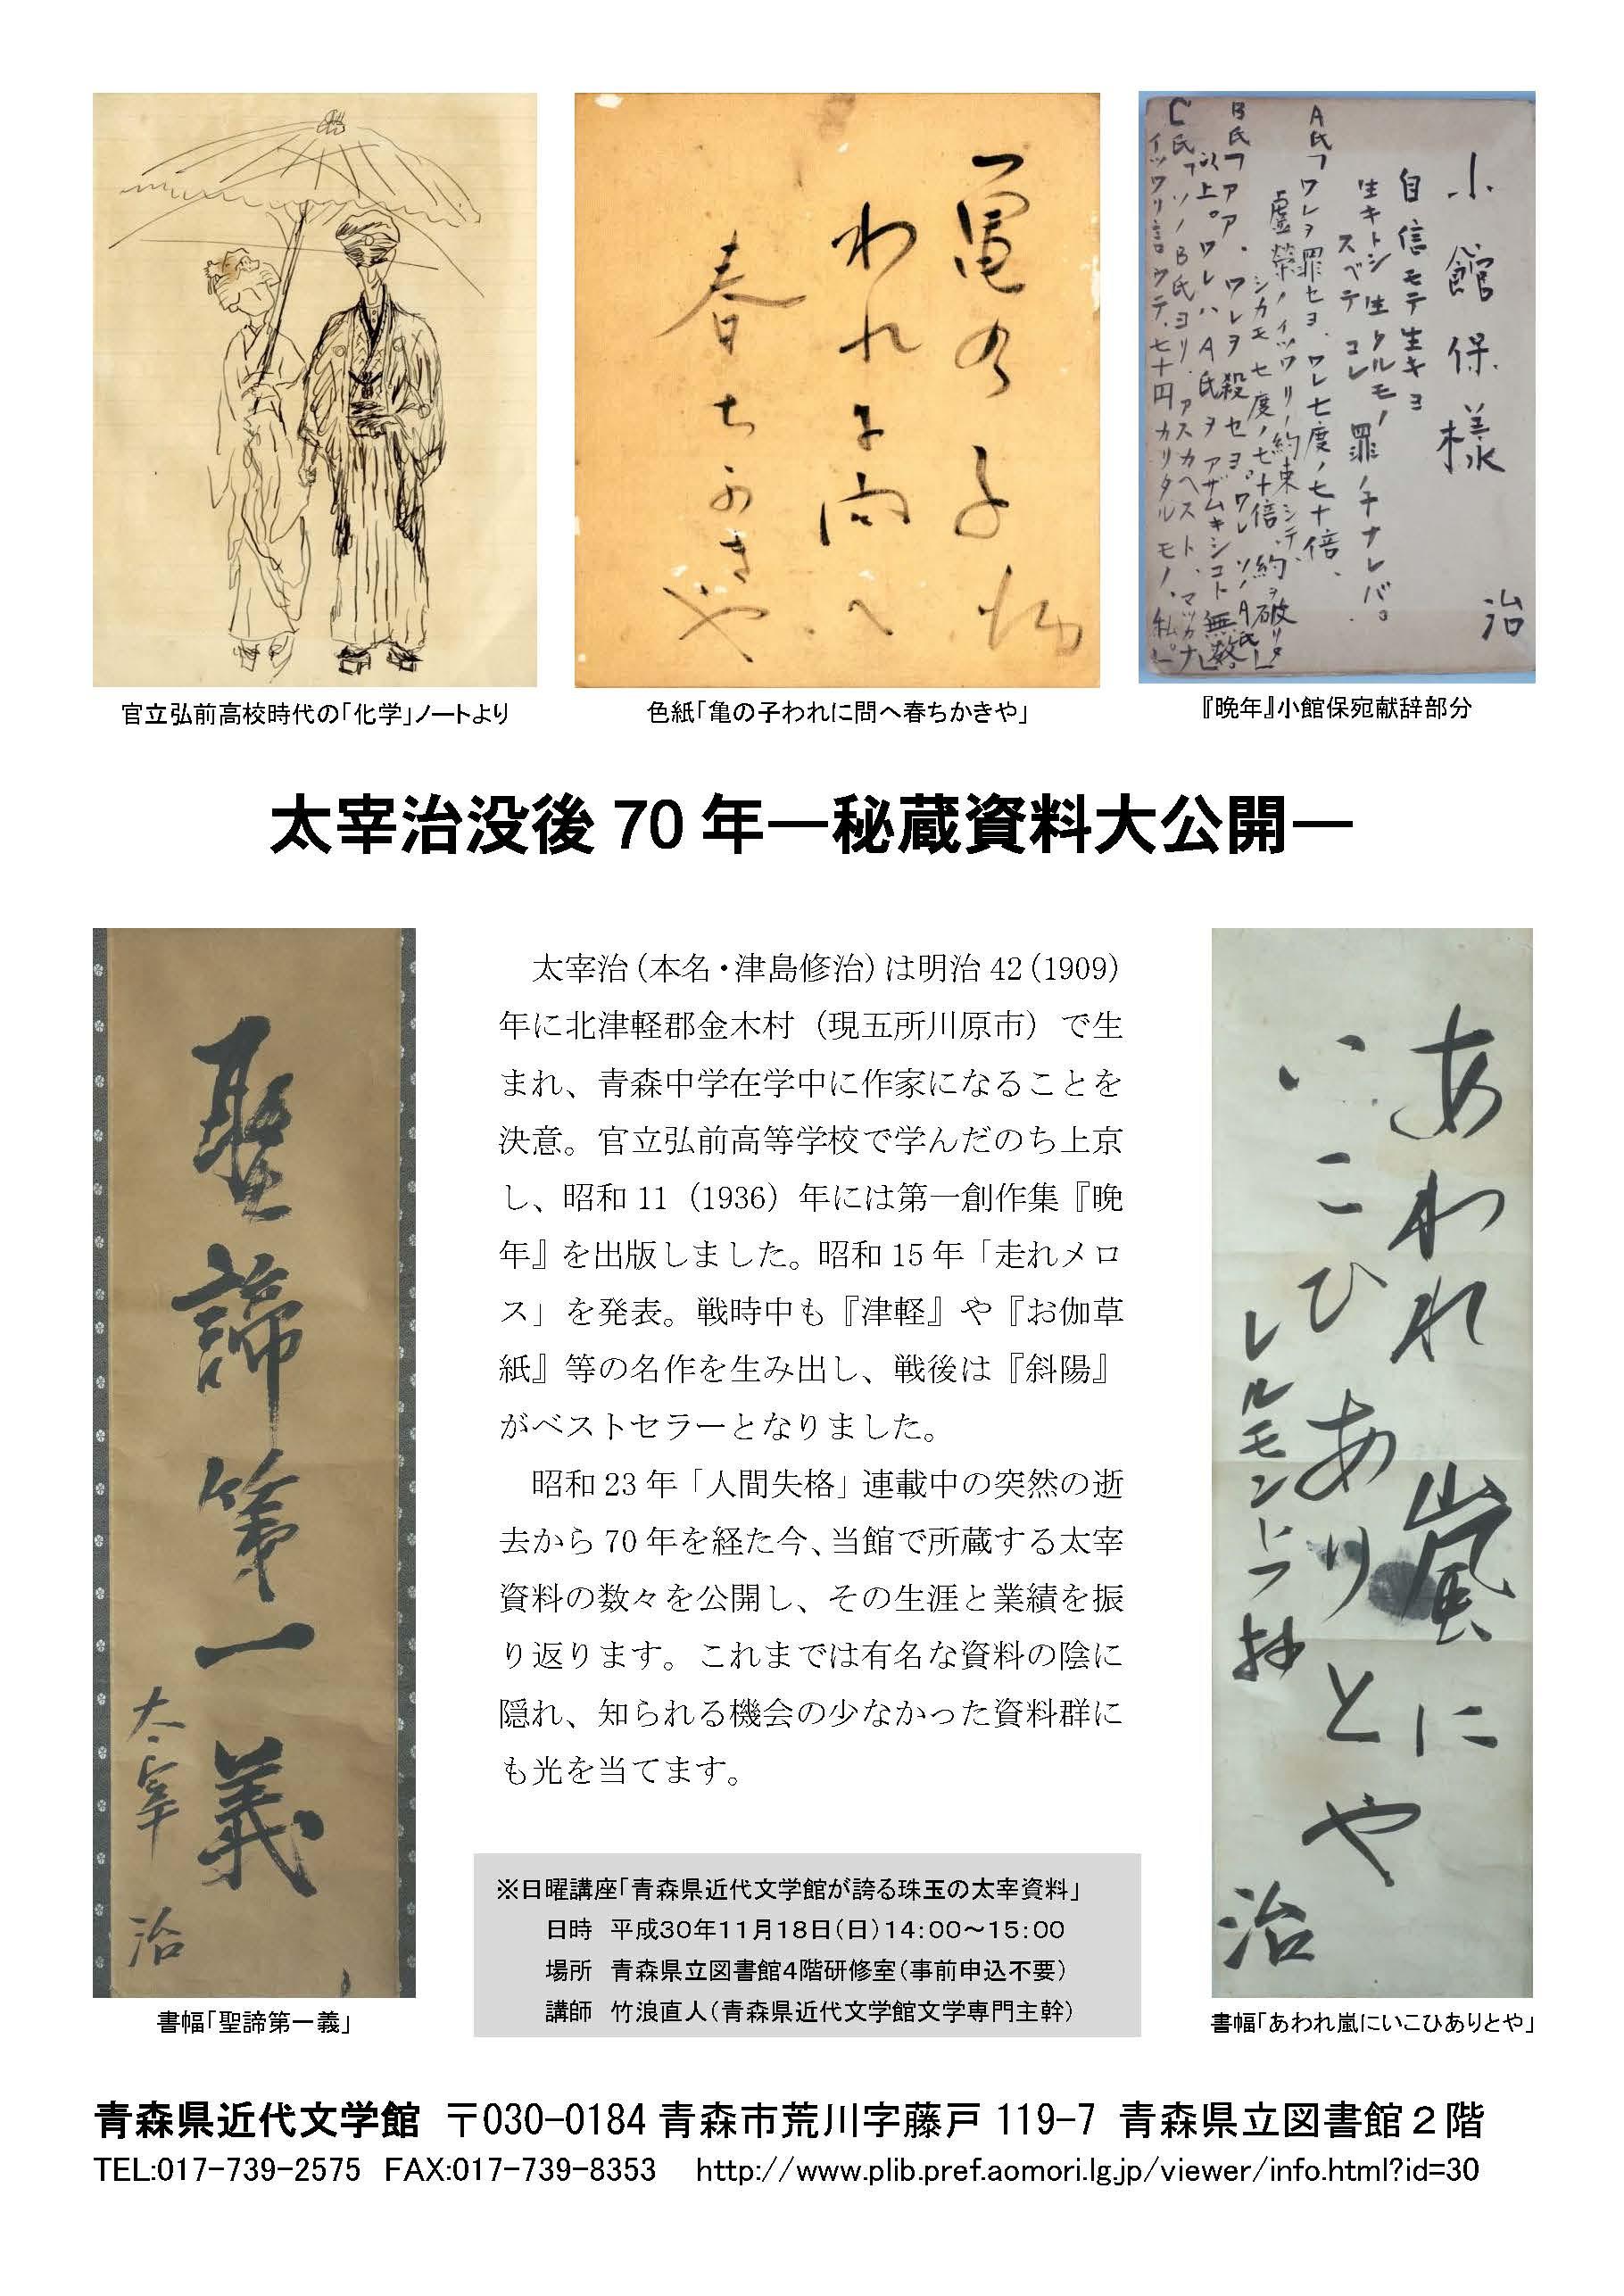 小館保様
治
自信モテ生キヨ
生キトシ生クルモノ
スベテコレ罪ノ子ナレバ。
A氏「ワレヲ罪セヨ、ワレ七度ノ七十倍、
虚栄ノイツワリノ約束シテ、
シカモ七度ノ七十倍、約ヲ破リタ
B氏「アア、ワレヲ殺セヨ。ワレソノA氏」
以上。ワレハA氏ヲアザムキシコト無数。」
C氏「ソノB氏ヨリ、アスカヘスト、マッカナ
イツワリ言ウテ、七十円カリタルモノ、私。」
亀の子
われに問へ
春ちかきや
官立弘前高校時代の「化学」ノートより
色紙「亀の子われに問へ春ちかきや」
『晩年』小館保宛献辞部分
太宰治没後 70 年―秘蔵資料大公開―
聖諦第一義
太宰治
太宰治(本名・津島修治)は明治 42(1909)
年に北津軽郡金木村（現五所川原市）で生
まれ、青森中学在学中に作家になることを
決意。官立弘前高等学校で学んだのち上京
し、昭和 11（1936）年には第一創作集『晩
年』を出版しました。昭和 15 年「走れメロ
ス」を発表。戦時中も『津軽』や『お伽草
紙』等の名作を生み出し、戦後は『斜陽』
がベストセラーとなりました。
昭和 23 年「人間失格」連載中の突然の逝
去から 70 年を経た今、当館で所蔵する太宰
資料の数々を公開し、その生涯と業績を振
り返ります。これまでは有名な資料の陰に
隠れ、知られる機会の少なかった資料群に
も光を当てます。
あわれ嵐に
いこひありとや
レルモントフ抄
治
※日曜講座「青森県近代文学館が誇る珠玉の太宰資料」
日時　平成30年11月18日(日)14:00～15:00
場所　青森県立図書館4階研修室(事前申込不要)
講師　竹浪直人(青森県近代文学館文学専門主幹)
書幅「聖諦第一義」
書幅「あわれ嵐にいこひありとや」
青森県近代文学館　〒030-0184 青森市荒川字藤戸 119-7 青森県立図書館２階
TEL:017-739-2575 FAX:017-739-8353 http://www.plib.pref.aomori.lg.jp/viewer/info.html?id=30